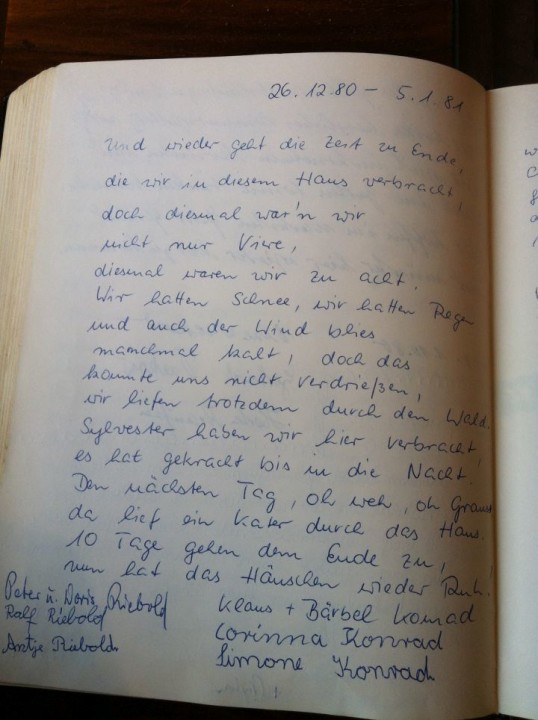 26.12.80 - 5.1.81
Und wieder geht die Zeit zu Ende,
die wir in diesem Haus verbracht,
doch diesmal war'n wir
nicht nur Viere,
diesmal waren wir zu acht.
Wir hatten Schnee, wir hatten Regen
und auch der Wind blies
manchmal kalt, doch das
konnte uns nicht verdrießen,
wir liefen trotzdem durch den Wald.
Sylvester haben wir hier verbracht,
es hat gekracht bis in die Nacht.
Den nächsten Tag, oh weh, oh Graus
da lief ein Kater durch das Haus.
10 Tage gehen dem Ende zu,
nun hat das Häuschen wieder Ruh.
Peter u. Doris Riebold
Ralf Riebold
Antje Riebold
Klaus + Bärbel Konrad
Corinna Konrad
Simone Konrad